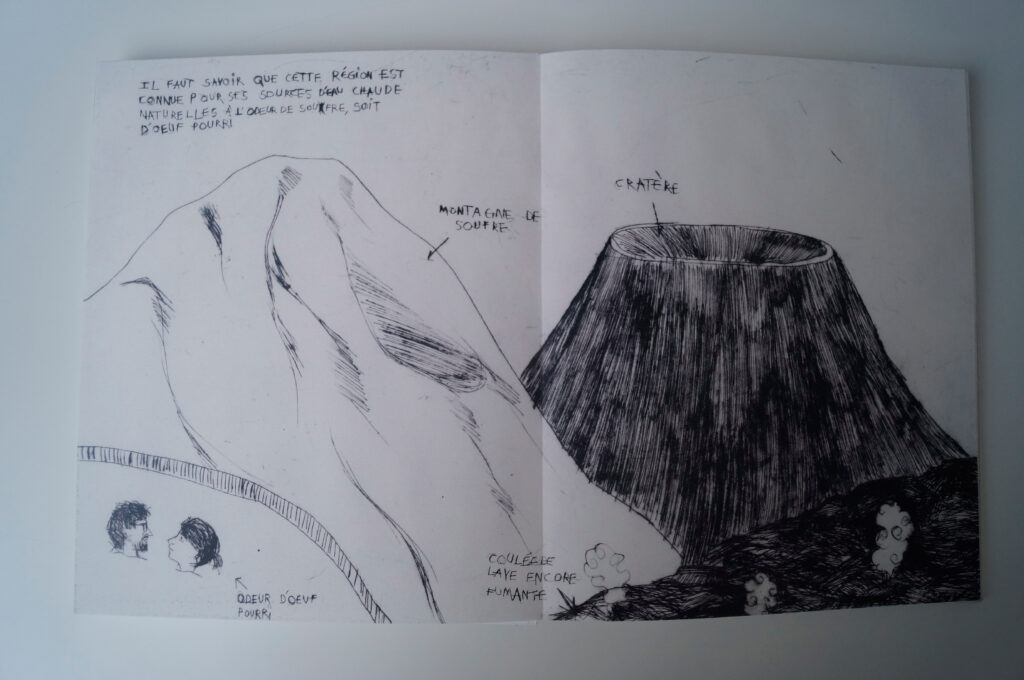 IL FAUT SAVOIR QUE CETTE RÉGION EST
CONNUE POUR SES SOURCES D'EAU CHAUDE
NATURELLES À L'ODEUR DE SOUFRE, SOIT
D'OEUF POURRI
MONTAGNE DE
SOUFRE
CRATÈRE
COULÉE DE
LAVE ENCORE
FUMANTE
ODEUR D'OEUF
POURRI